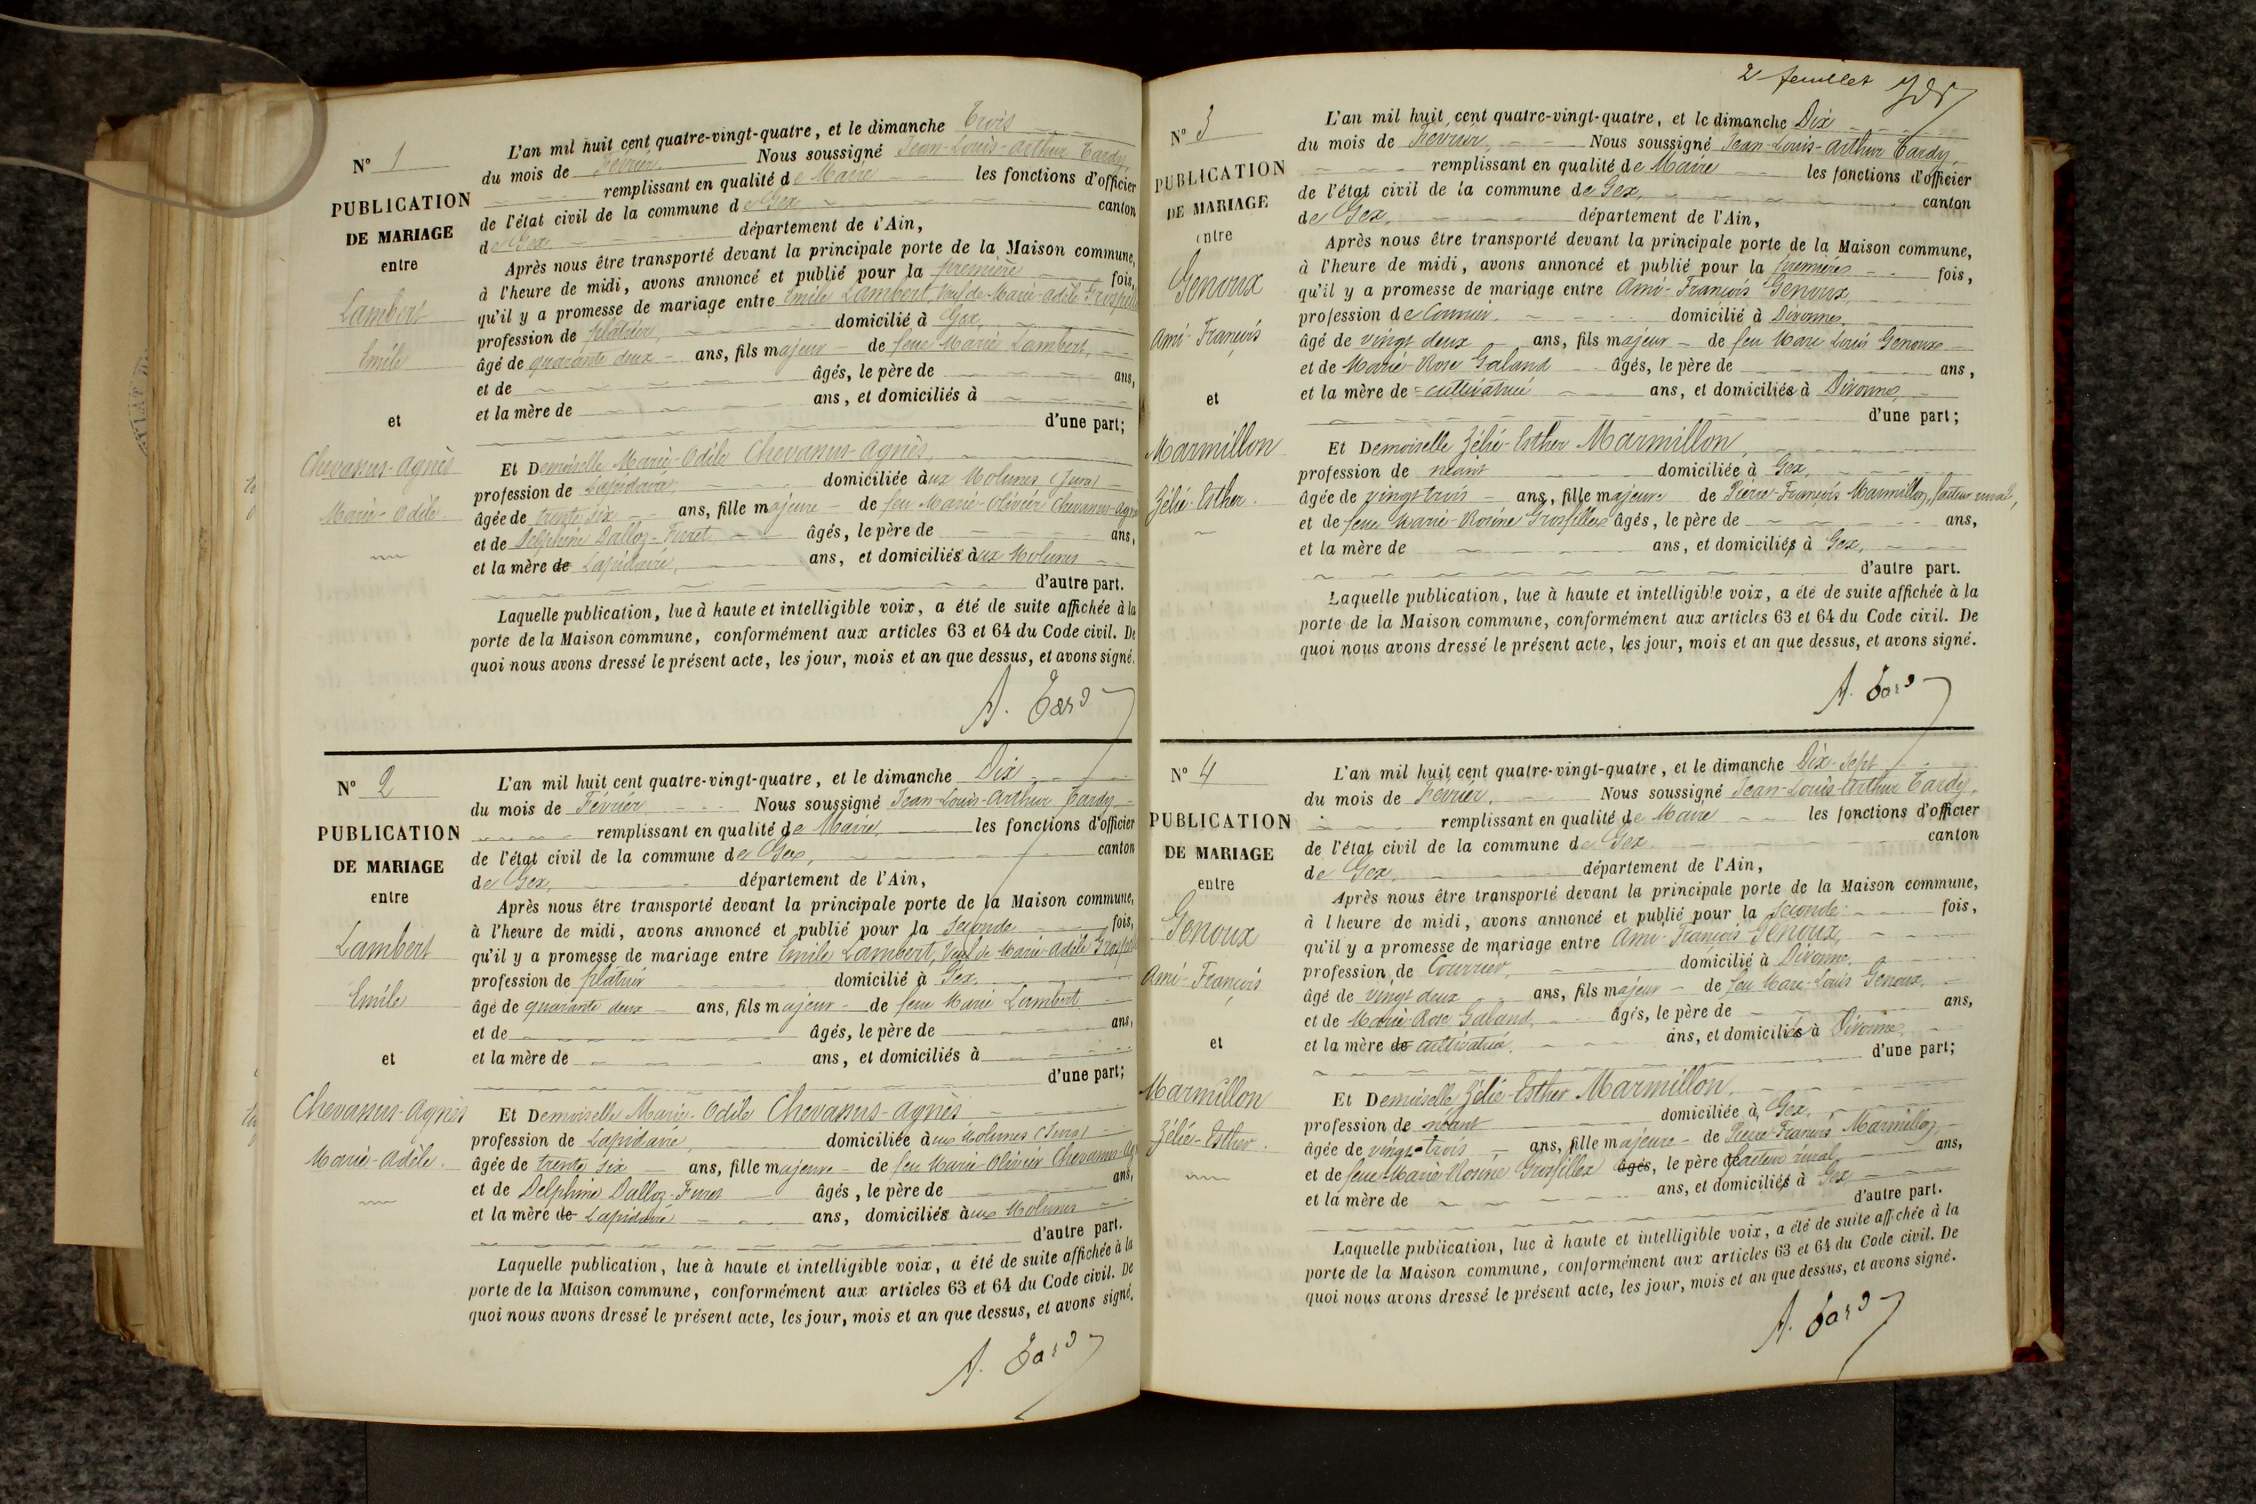 N° 1
PUBLICATION
DE MARIAGE
entre
Lambert
Emile
et
Chevassus-Agnès
Marie-Odile
L'an mil huit cent quatre-vingt-quatre, et le dimanche Trois
du mois de Février Nous soussigné Jean-Louis-Arthur Tardy,
remplissant en qualité de Maire les fonctions d'officier
de l'état civil de la commune de Gex canton
de Gex département de l'Ain,
Après nous être transporté devant la principale porte de la Maison commune,
à l'heure de midi, avons annoncé et publié pour la première fois,
qu'il y a promesse de mariage entre Emile Lambert, veuf de Marie-Adèle
profession de plâtrier, domicilié à Gex,
âgé de quarante deux ans, fils majeur de feue Marie Lambert,
et de âgés, le père de ans,
et la mère de ans, et domiciliés à
d'une part;
Et Demoiselle Marie-Odile Chevassus-Agnès,
profession de Lapidaire, domiciliée aux Molunes (Jura)
âgée de trente six ans, fille majeure de feu Marie-Olivier Chevassus-Agnès
et de Delphine Dalloz-Furet âgés, le père de ans,
et la mère de Lapidaire, ans, et domiciliés aux Molunes
d'autre part.
Laquelle publication, lue à haute et intelligible voix, a été de suite affichée à la
porte de la Maison commune, conformément aux articles 63 et 64 du Code civil. De
quoi nous avons dressé le présent acte, les jour, mois et an que dessus, et avons signé.
A. Tardy
N° 2
PUBLICATION
DE MARIAGE
entre
Lambert
Emile
et
Chevassus-Agnès
Marie-Adèle.
L'an mil huit cent quatre-vingt-quatre, et le dimanche Dix
du mois de Février Nous soussigné Jean-Louis-Arthur Tardy
remplissant en qualité de Maire, les fonctions d'officier
de l'état civil de la commune de Gex, canton
de Gex, département de l'Ain,
Après nous être transporté devant la principale porte de la Maison commune,
à l'heure de midi, avons annoncé et publié pour la seconde fois,
qu'il y a promesse de mariage entre Emile Lambert, veuf de Marie-Adèle
profession de plâtrier domicilié à Gex,
âgé de quarante deux ans, fils majeur de feue Marie Lambert
et de âgés, le père de ans,
et la mère de ans, et domiciliés à
d'une part;
Et Demoiselle Marie-Odile Chevassus-Agnès
profession de Lapidaire, domiciliée aux Molunes (Jura)
âgée de trente six ans, fille majeure de feu Marie Olivier Chevassus-Ag
et de Delphine Dalloz-Furet âgés, le père de ans,
et la mère de Lapidaire ans, domiciliés aux Molunes
d'autre part.
Laquelle publication, lue à haute et intelligible voix, a été de suite affichée à la
porte de la Maison commune, conformément aux articles 63 et 64 du Code civil. De
quoi nous avons dressé le présent acte, les jour, mois et an que dessus, et avons signé.
A. Tardy
2e feuillet
N° 3
PUBLICATION
DE MARIAGE
entre
Genoux
Ami-François
et
Marmillon
Zélie-Esther.
L'an mil huit cent quatre-vingt-quatre, et le dimanche Dix
du mois de Février, Nous soussigné Jean-Louis-Arthur Tardy,
remplissant en qualité de Maire les fonctions d'officier
de l'état civil de la commune de Gex, canton
de Gex, département de l'Ain,
Après nous être transporté devant la principale porte de la Maison commune,
à l'heure de midi, avons annoncé et publié pour la première fois,
qu'il y a promesse de mariage entre Ami-François Genoux,
profession de Courrier domicilié à Divonne,
âgé de vingt deux ans, fils majeur de feu Marc Louis Genoux
et de Marie-Rose Galand âgés, le père de ans,
et la mère de cultivatrice ans, et domiciliés à Divonne,
d'une part;
Et Demoiselle Zélie-Esther Marmillon,
profession de néant domiciliée à Gex,
âgée de vingt trois ans, fille majeure de Pierre-François Marmillon, facteur rural,
et de feue Marie-Rosine Grosfillex âgés, le père de ans,
et la mère de ans, et domiciliés à Gex,
d'autre part.
Laquelle publication, lue à haute et intelligible voix, a été de suite affichée à la
porte de la Maison commune, conformément aux articles 63 et 64 du Code civil. De
quoi nous avons dressé le présent acte, les jour, mois et an que dessus, et avons signé.
A. Tardy
N° 4
PUBLICATION
DE MARIAGE
entre
Genoux
Ami-François
et
Marmillon
Zélie-Esther.
L'an mil huit cent quatre-vingt-quatre, et le dimanche Dix-Sept
du mois de Février, Nous soussigné Jean-Louis-Arthur Tardy,
remplissant en qualité de Maire les fonctions d'officier
de l'état civil de la commune de Gex canton
de Gex, département de l'Ain,
Après nous être transporté devant la principale porte de la Maison commune,
à l'heure de midi, avons annoncé et publié pour la seconde fois,
qu'il y a promesse de mariage entre Ami-François Genoux,
profession de Courrier, domicilié à Divonne,
âgé de vingt deux ans, fils majeur de feu Marc-Louis Genoux,
et de Marie-Rose Galand, âgés, le père de ans,
et la mère de cultivatrice. ans, et domiciliés à Divonne
d'une part;
Et Demoiselle Zélie-Esther Marmillon,
profession de néant domiciliée à Gex,
âgée de vingt-trois ans, fille majeure de Pierre-François Marmillon,
et de feue Marie Rosine Grosfillex âgés, le père de facteur rural ans,
et la mère de ans, et domiciliés à Gex
d'autre part.
Laquelle publication, lue à haute et intelligible voix, a été de suite affichée à la
porte de la Maison commune, conformément aux articles 63 et 64 du Code civil. De
quoi nous avons dressé le présent acte, les jour, mois et an que dessus, et avons signé.
A. Tardy